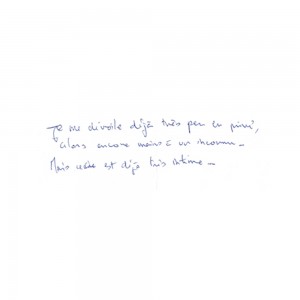 Je me dévoile déjà très peu en privé,
Alors encore moins à un inconnu _
Mais cela est déjà très intime _